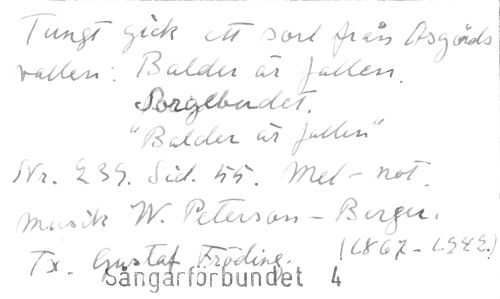 Tungt gick ett sorl från Asgårds
vallen: Balder är fallen.
Sorgebudet.
"Balder är fallen"
Nr. 239. Sid. 55. Mel-not.
Musik W. Peterson-Berger.
(1867-1942.)
Tx. Gustaf Fröding.
Sångarförbundet 4